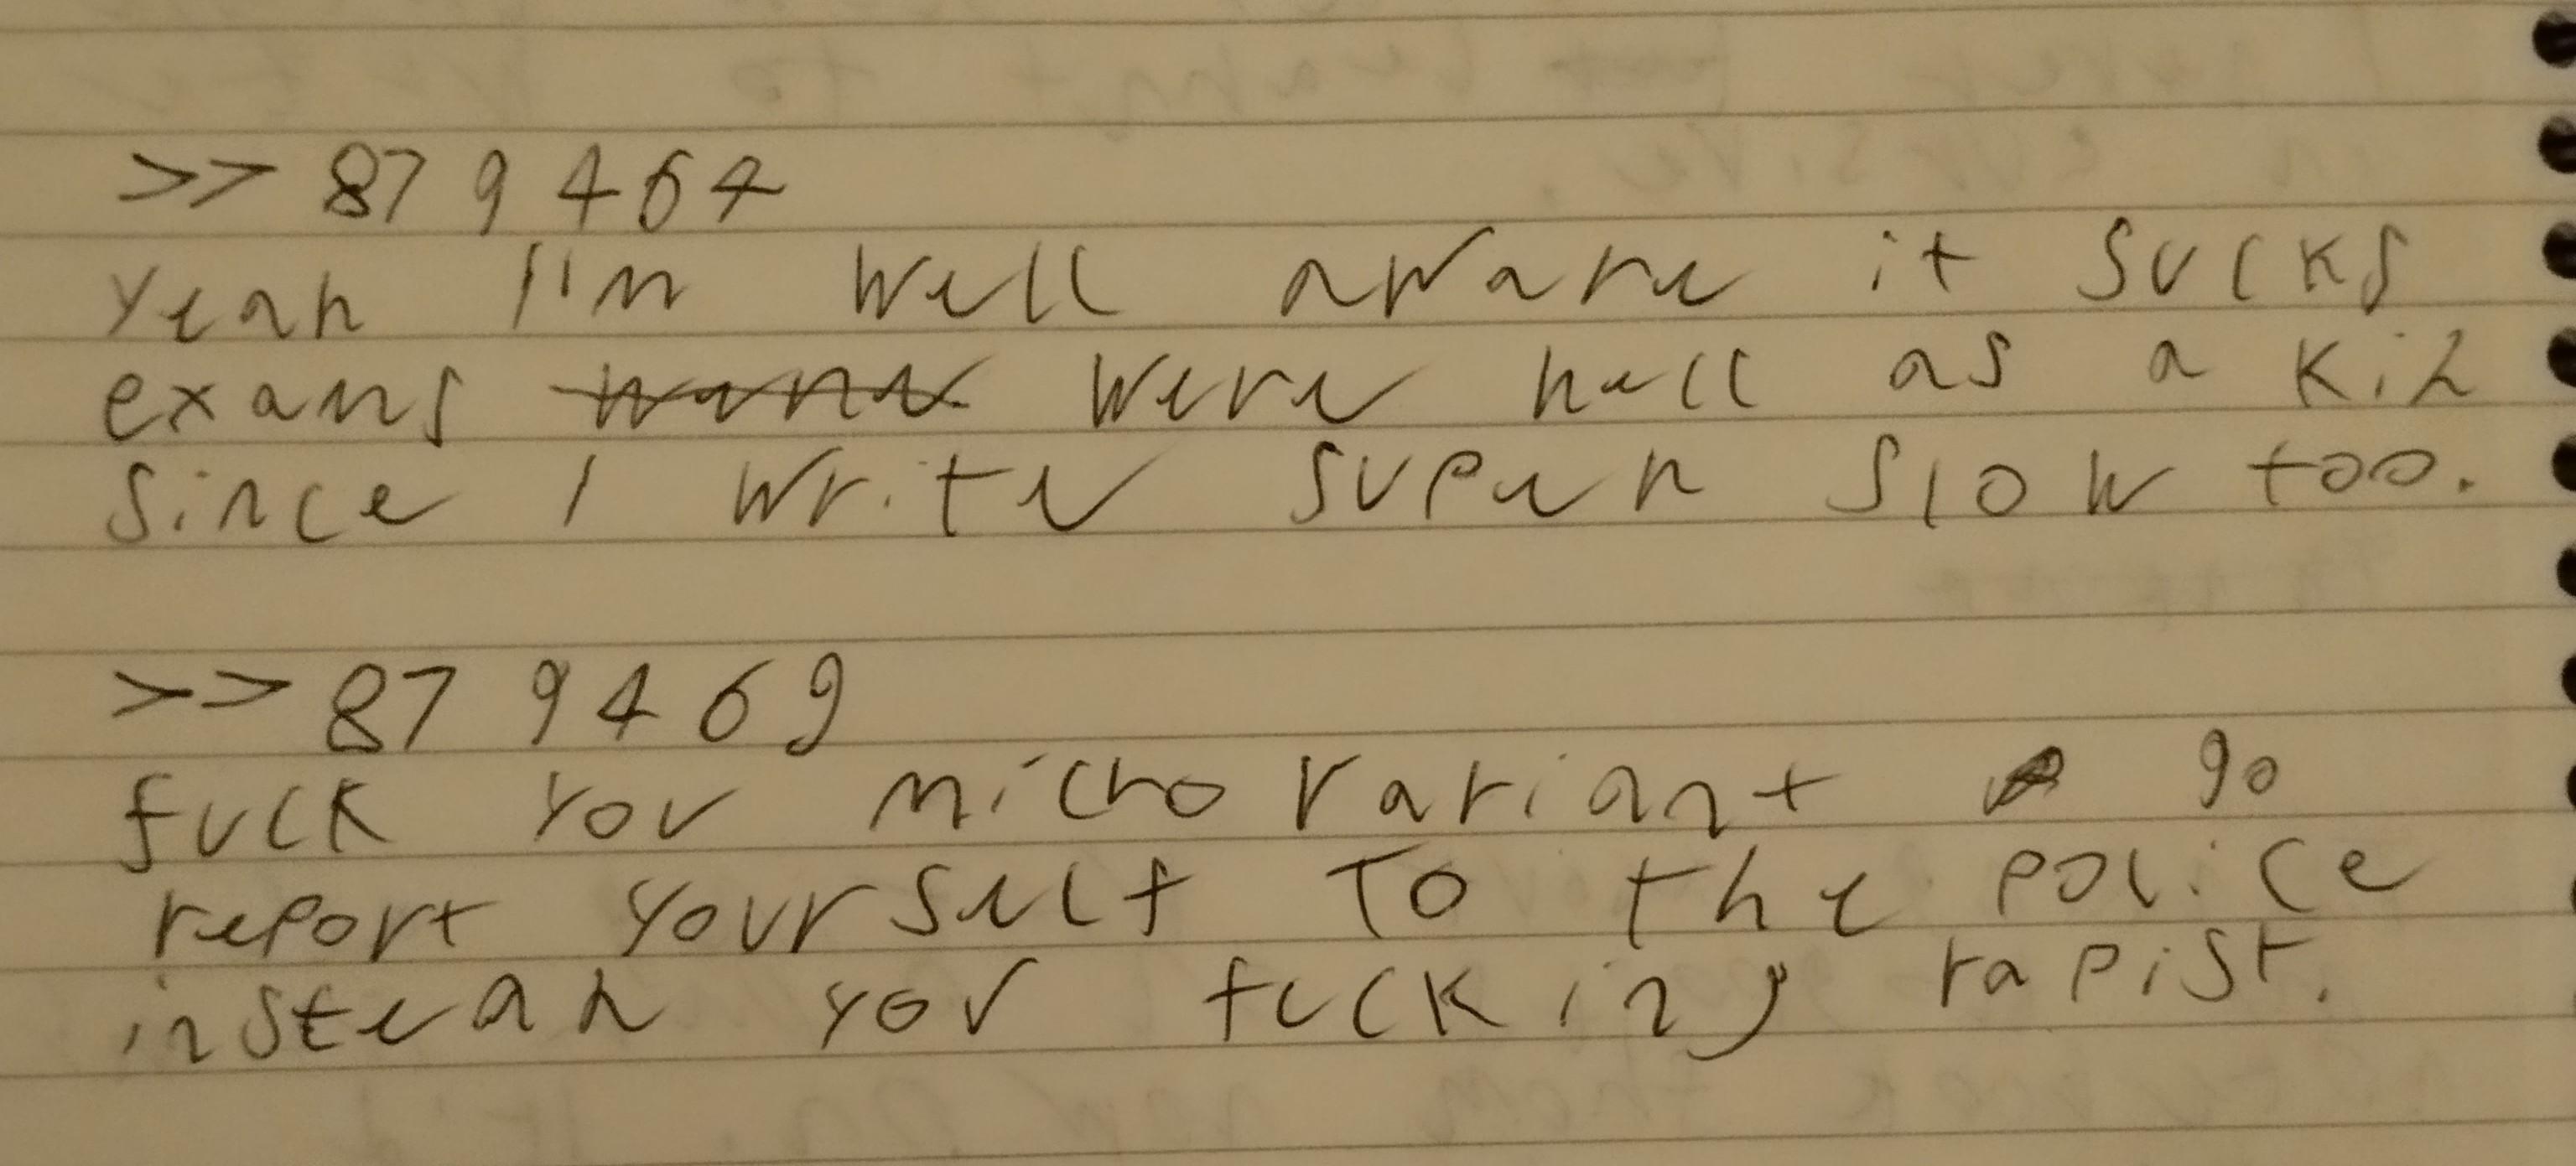 >>879464
Yeah I'm well aware it sucks
exams were hell as a kid
since I write super slow too.
>>879469
fuck you microvariant go
report yourself to the police
instead you fucking rapist.